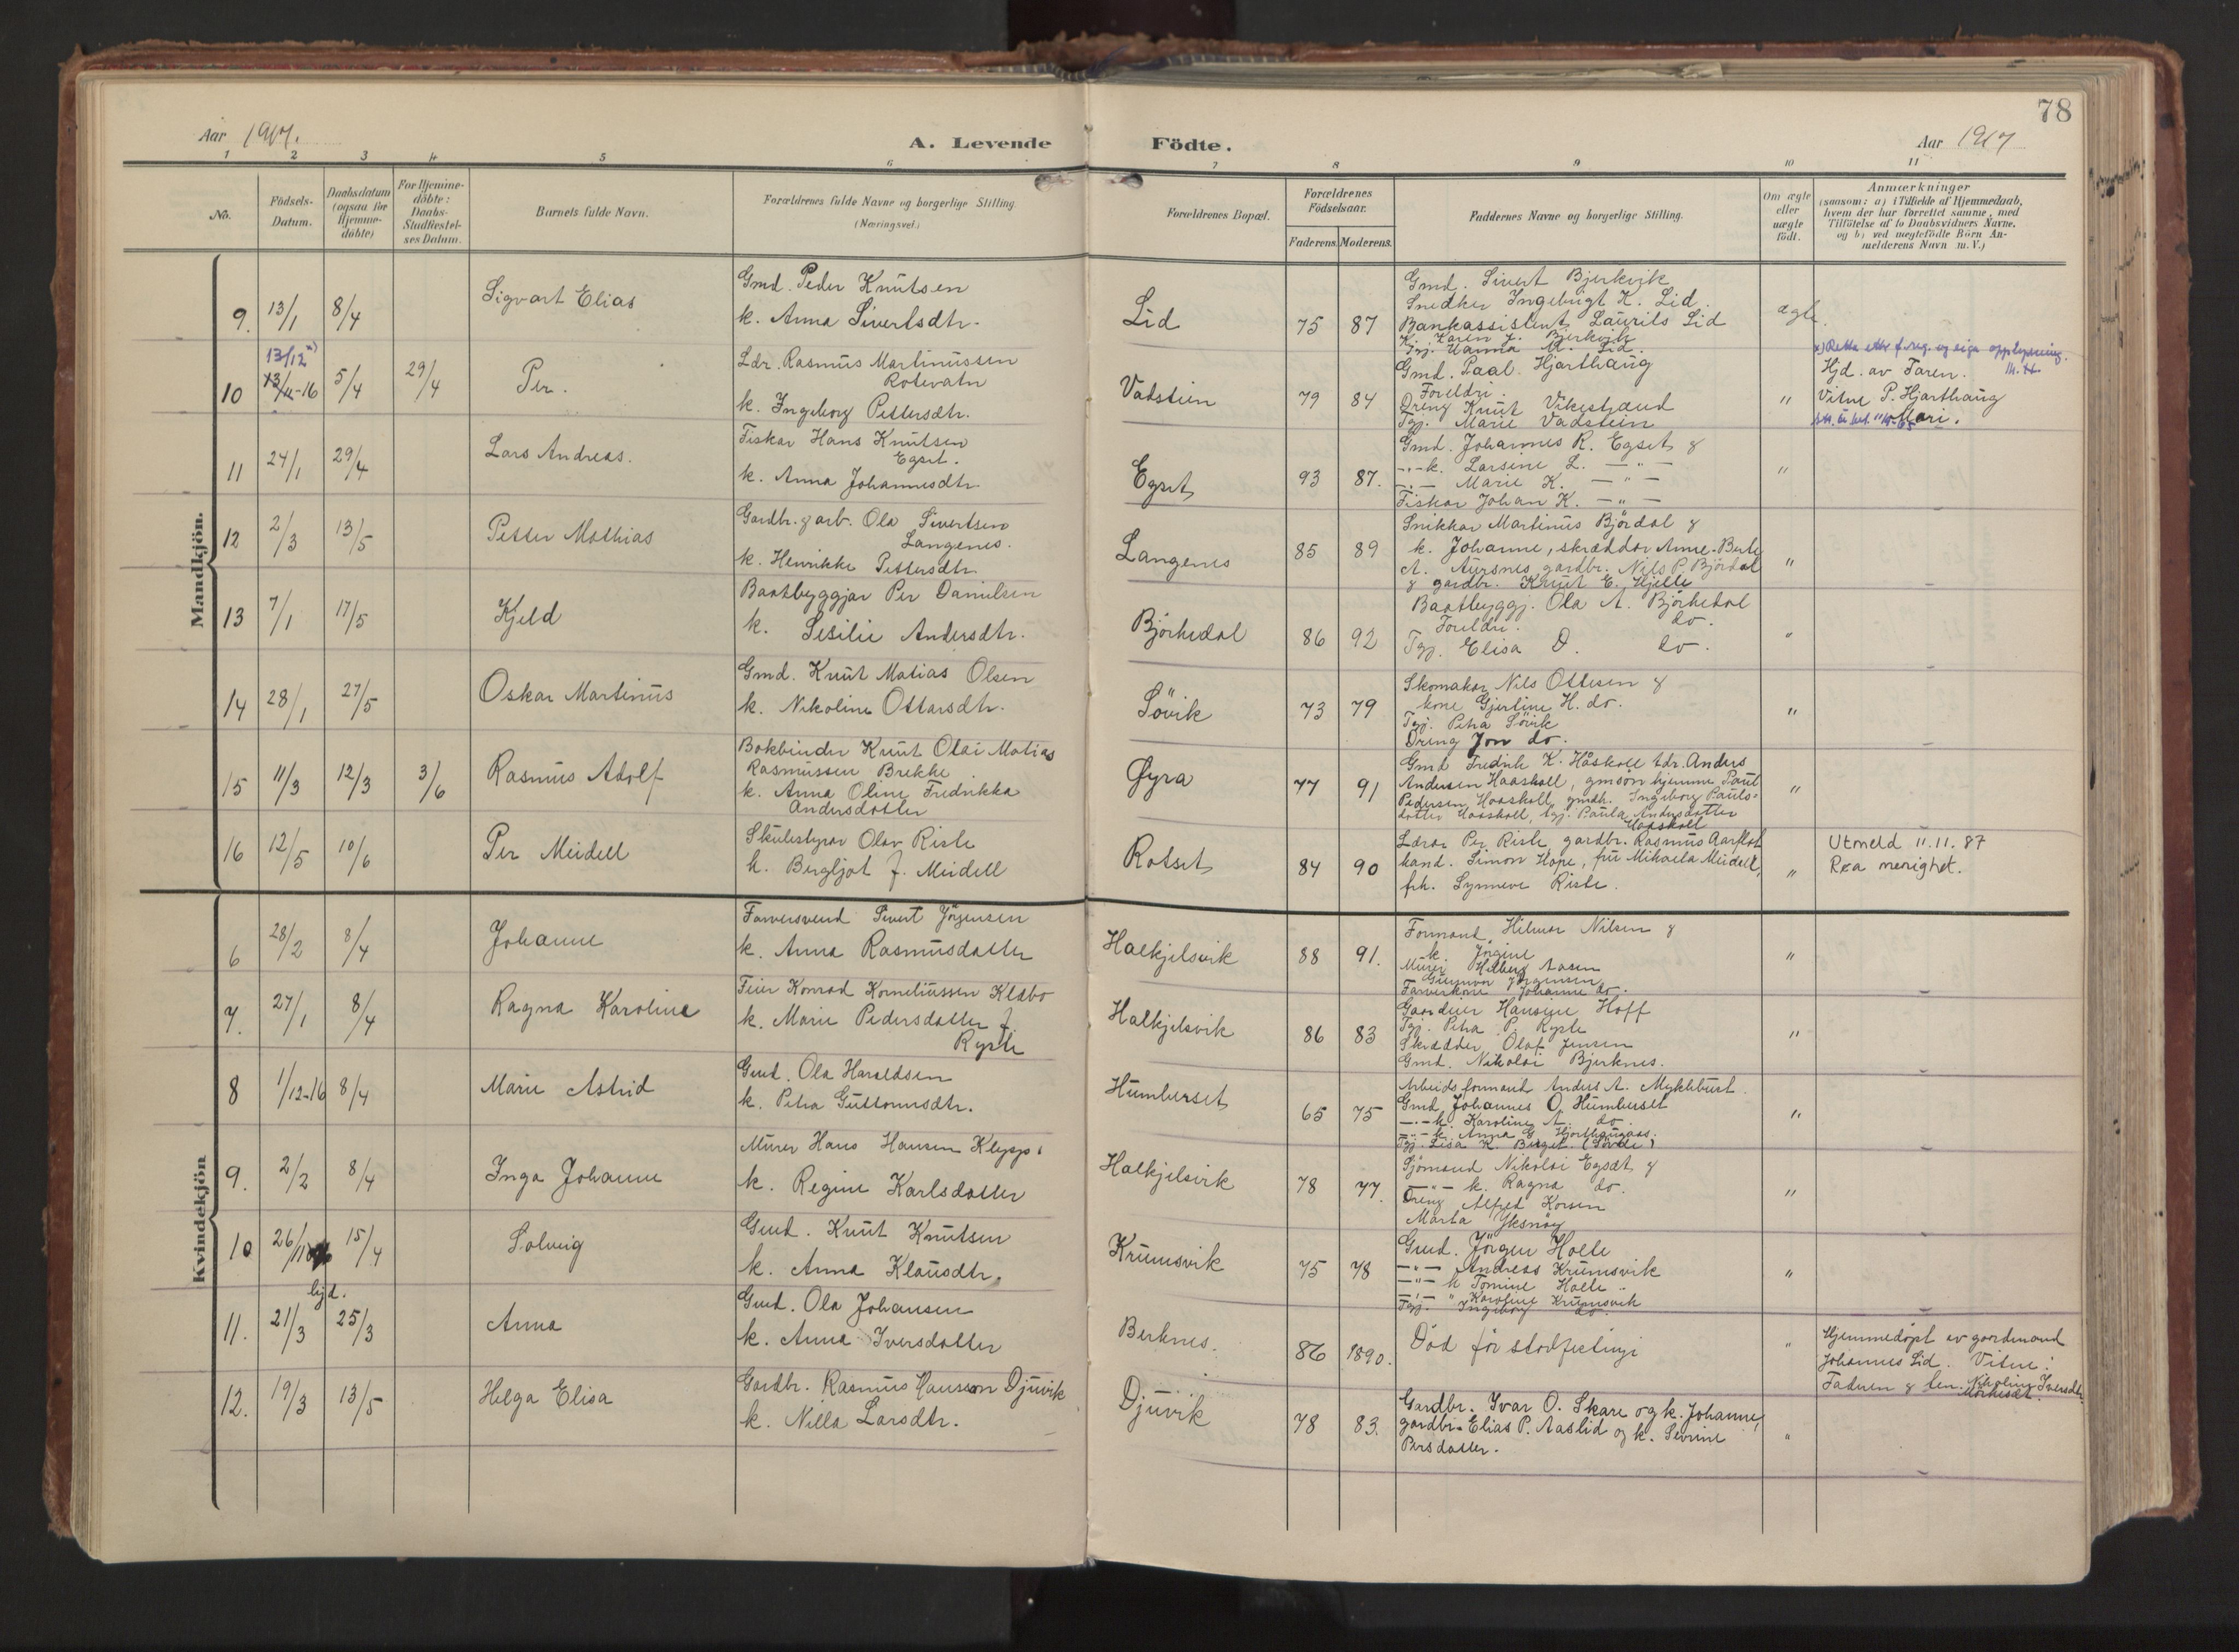 78
Aar 1917.
A. Levende Födte.
Aar 1917
1 2 3 4 5 6 7 8 9 10 11
No.
Födsels-
Datum.
Daabsdatum
(ogsaa for
Hjemme-
döbte)
For Hjemme-
döbte:
Daabs-
Stadfæstel-
ses Datum.
Barnets fulde Navn.
Forældrenes fulde Navne og borgerlige Stilling.
(Næringsvei.)
Forældrenes Bopæl.
Forældrenes
Födselsaar.
Faderens. Moderens.
Faddernes Navne og borgerlige Stilling.
Om ægte
eller
uægte
födt.
Anmærkninger
(saasom: a) i Tilfælde af Hjemmedaab,
hvem der har forrettet samme, med
Tilföielse af to Daabsvidners Navne,
og b) ved uægtefödte Börn An-
melderens Navn m. V.)
Mandkjön.
9. 13/1 8/4
Sigvart Elias
Gmd. Peder Knutsen
k. Anna Sivertsdtr.
Lid
75 87
Gmd. Sivert Bjerkvik
Snedker Ingebrigt K. Lid.
Bankassistent Laurits Lid
K. Karen J. Bjerkvik
Tgj. Hanna M. Lid.
ægte.
10 13/12 x)
13/11-16 5/4 29/4
Per.
Ldr. Rasmus Martinussen
Rotevatn
k. Ingeborg Pettersdtr.
Vatstein
79 84
Gmd. Paal Hjarthaug
Foreldri.
Dreng Knut Vikestrand
Tgj. Marie Vadstein
"
x) Retta etter f.reg. og eiga opplysning.
Hjd. av Faren. M. H.
Vitne P. Hjarthaug
Mari.
11 24/1 29/4
Lars Andreas.
Fiskar Hans Knutsen
Egset.
k. Anna Johannesdtr.
Egset
93 87.
Gmd. Johannes R. Egset &
-"- k. Larsine L. — " —
-"- Marie K. — " —
Fiskar Johan K. — " —
"
12 2/3 13/5
Petter Mathias
Gardbr. & arb. Ola Sivertsen
Langenes.
k. Henrikke Pettersdtr.
Langenes
85 89
Snikkar Martinus Bjørdal &
k. Johanne, skræddar Anne-Berte
A. Aursnes, gardbr. Nils P. Bjørdal
& gardbr. Knut E. Hjelle
"
13 7/1 17/5
Kjeld
Baatbyggjar Per Danielsen
k. Sesilie Andersdtr.
Björkedal
86 92
Baatbyggj. Ola A. Björkedal
Foreldri. do.
Tgj. Elisa D. do.
"
14 28/1 27/5
Oskar Martinus
Gmd. Knut Matias Olsen
k. Nikoline Ottarsdtr.
Sövik
73 79
Skomakar Nils Ottesen &
kone Gjertine H. do.
Tgj. Petra Sövik
Dreng Jon do.
"
15 11/3 12/3 3/6
Rasmus Adolf
Bokbinder Knut Olai Matias
Rasmussen Brekke
k. Anna Oline Fredrikka
Andersdotter
Øyra
77 91
Gmd Fredrik K. Håskoll ldr. Anders
Andersen Haaskoll, gmsøn hjemme Paul
Pedersen Haaskoll, gmdtr. Ingeborg Pauls-
dotter Haaskoll, tgj. Paula Andersdotter
Haaskoll
"
16 12/5 10/6
Per Meidell
Skulestyrar Olav Riste
k. Bergljot f. Meidell
Rotset
84 90
Lærar Per Riste, gardbr. Rasmus Aarflot
kand. Simon Hope, fru Mikaela Meidell,
frk. Synneve Riste.
"
Utmeld 11.11.87
Røa menighet.
Kvindekjön
6 28/2 8/4
Johanne
Farversvend Sivert Jörgensen
k. Anna Rasmusdatter
Halkjelsvik
88 91.
Formand Hilmar Nilsen &
k. Jörgine
Murer Hilberg Aasen
Gunnvor Jørgensen
Farverkone Johanne do.
"
7. 27/1 8/4
Ragna Karoline
Feier Konrad Korneliussen Klebo
k. Marie Pedersdatter f.
Ryste
Halkjelsvik
86 83
Gaardeier Hansine Hoff
Tgj. Petra P. Ryste
Skrædder Olaf Jensen
Gmd. Nikolai Bjerknes.
"
8 1/12-16 8/4
Marie Astrid
Gmd. Ola Haraldsen
k. Petra Guttormsdtr.
Humberset
65 75
Arbeidsformand Anders A. Myklebust
Gmd Johannes O. Humberset
-"- k. Karoline A. do
-"- k. Anna G. Hjorthaugaas.
Tgj. Lisa K. Berget. (Sørde)
"
9. 2/2 8/4
Inga Johanne
Murer Hans Hansen Klepp.
k. Regine Karlsdatter
Halkjelsvik
78 77.
Sjömand Nikolai Egset &
-"- k. Ragna do.
Dreng Alfred Korsen
Marta Yksnöy
"
10 26/11 15/4
Solveig
Gmd. Knut Knutsen
k. Anna Klausdtr.
Krumsvik
75 78
Gmd. Jörgen Holle
-"- Andreas Krumsvik
-"- k Tomine Holle
-"- " Karoline Krumsvik
Tgj. Ingeborg do.
"
11. 21/3 hjd. 25/3
Anna
Gmd. Ola Johansen
k. Anna Iversdatter
Berknes.
86 1890.
Död för stadfestingi
"
Hjemmedöpt av gaardmand
Johannes Lid. Vitne:
Faderen & len. Nikoline Iversdtr.
12. 19/3 13/5
Helga Elisa
Gardbr. Rasmus Hansson Djuvik
k. Nilla Larsdtr.
Djuvik
78 83.
Gardbr. Ivar O. Skare og k. Johanne,
gardbr. Elias P. Aaslid og k. Sevrine
Persdatter.
"